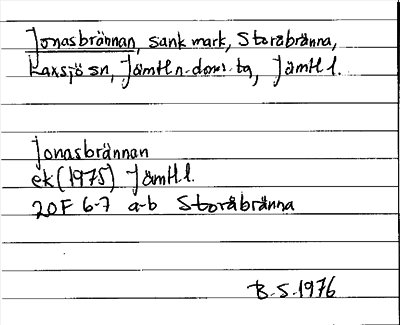 Jonasbrännan, sank mark, Storåbränna,
Laxsjö sn, Jämtl n. doms. tg, Jämtl l.
Jonasbrännan
ek (1975) Jämtl l.
20F 6-7 a-b Storåbränna
B.S. 1976